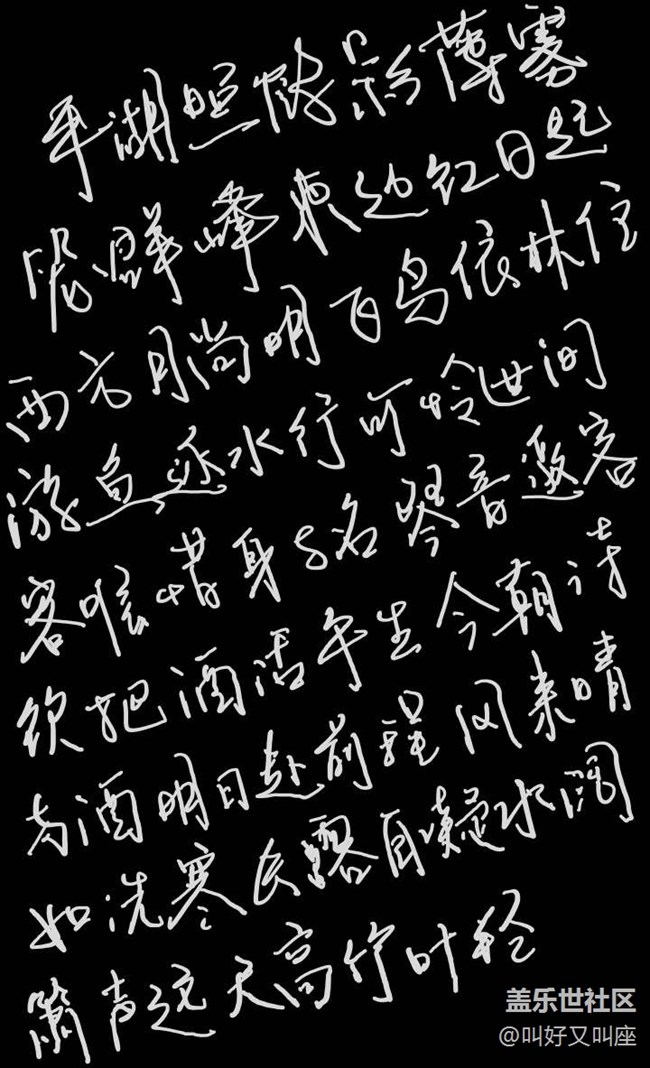 平湖照倦影薄雾
隐群峰东边红日起
西方月尚明百鸟依林住
游鱼逐水行可怜世间
客唯惜身与名琴音邀客
饮把酒话平生今朝诗
与酒明日赴前程风来晴
如洗寒长露自凝水阔
箫声远天高竹叶轻
盖乐世社区
@叫好又叫座